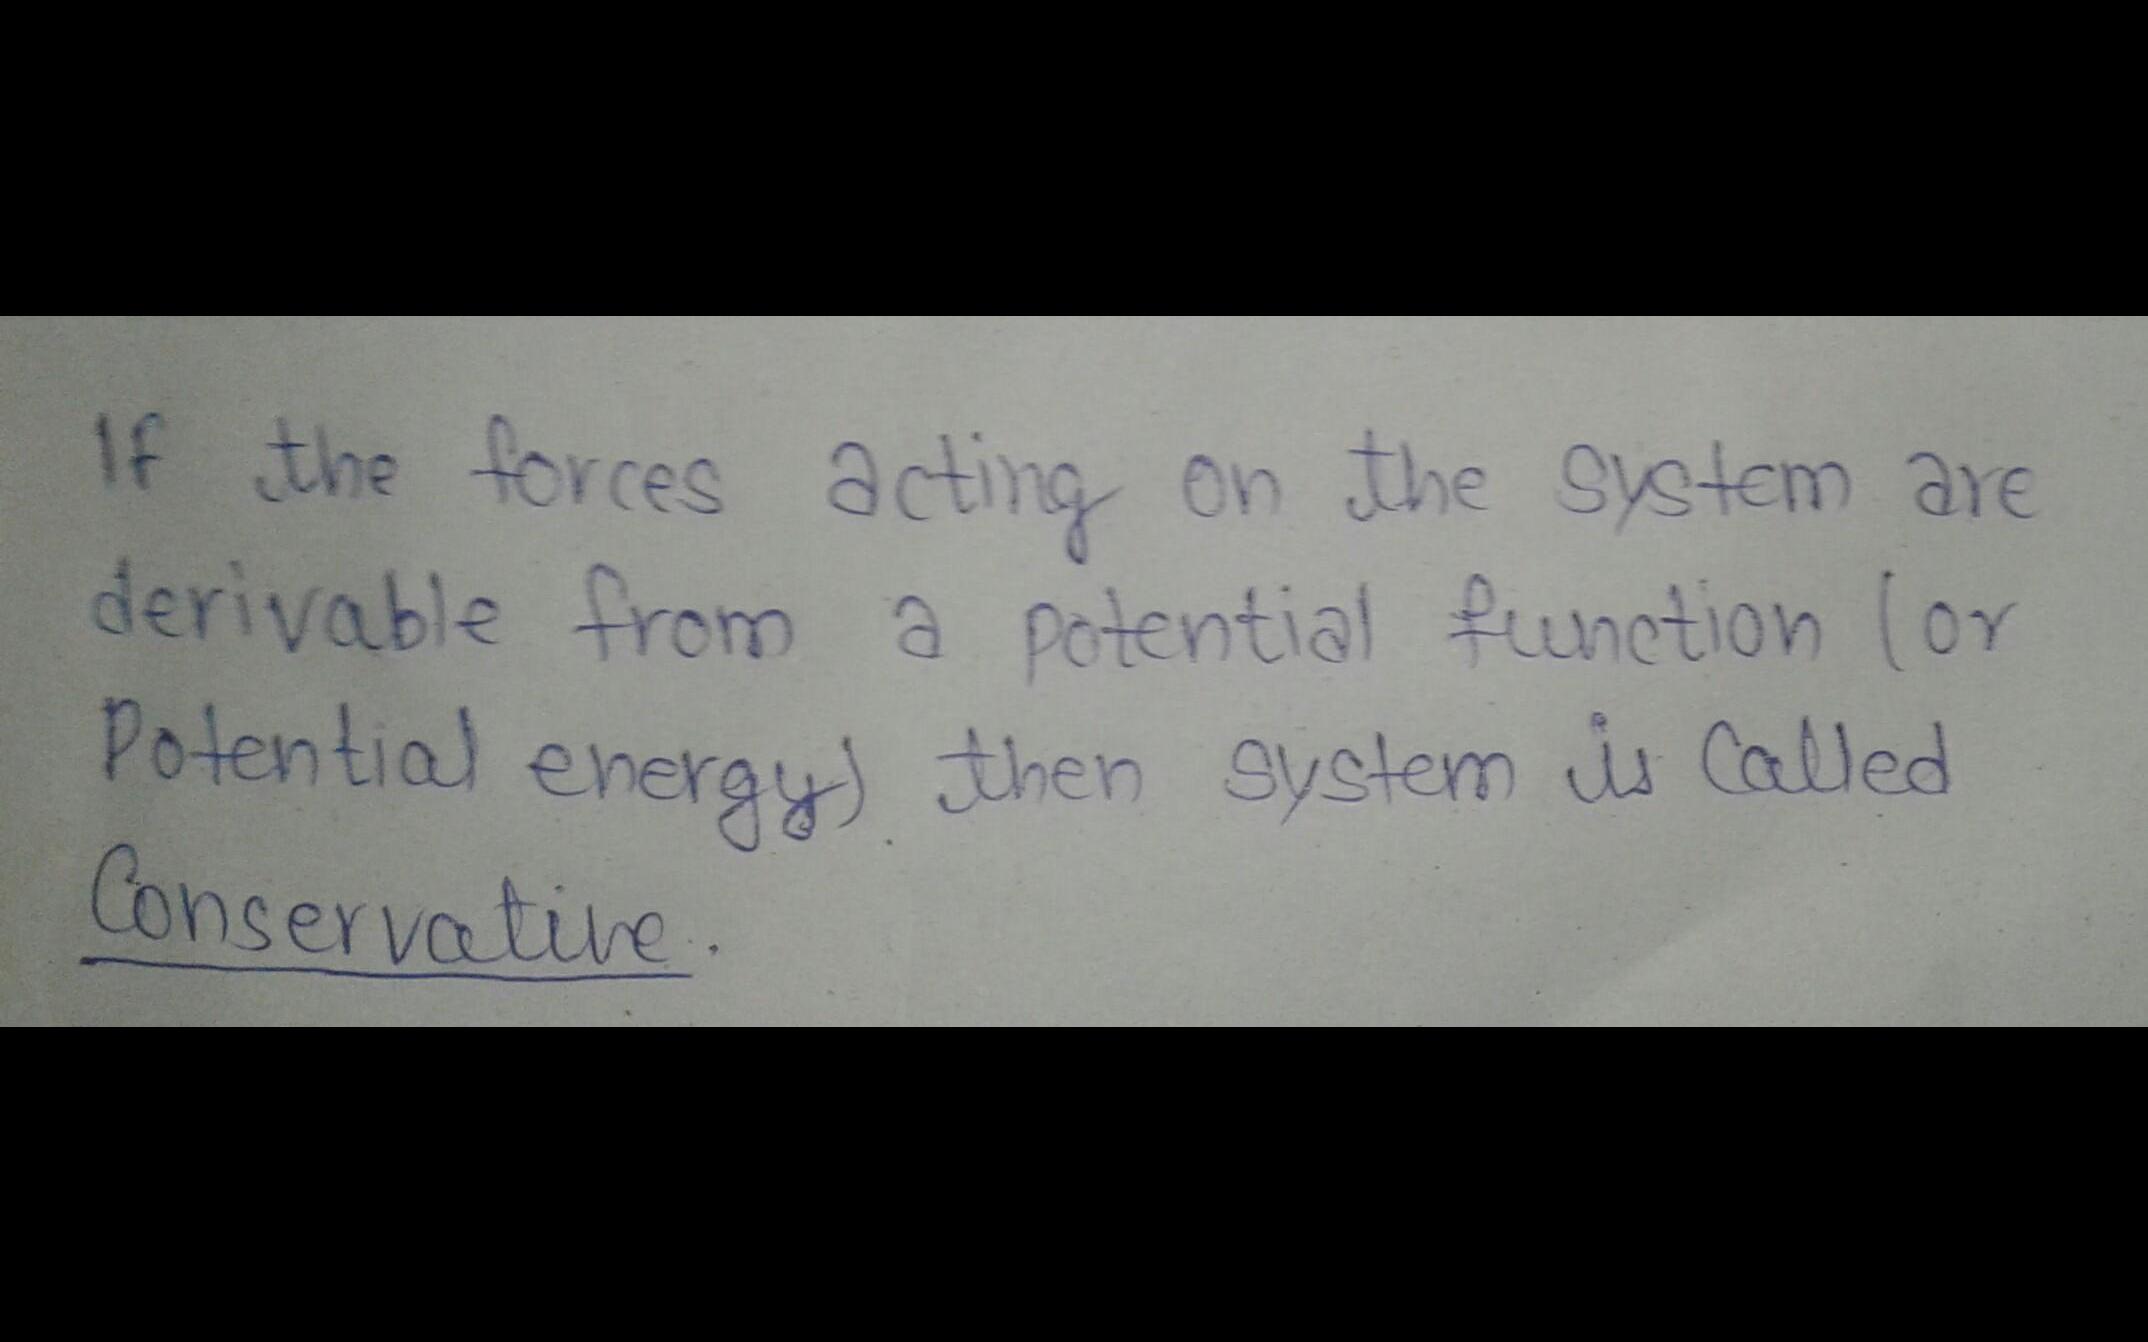 If the forces acting on the system are
derivable from a potential function (or
Potential energy) then system is Called
Conservative.